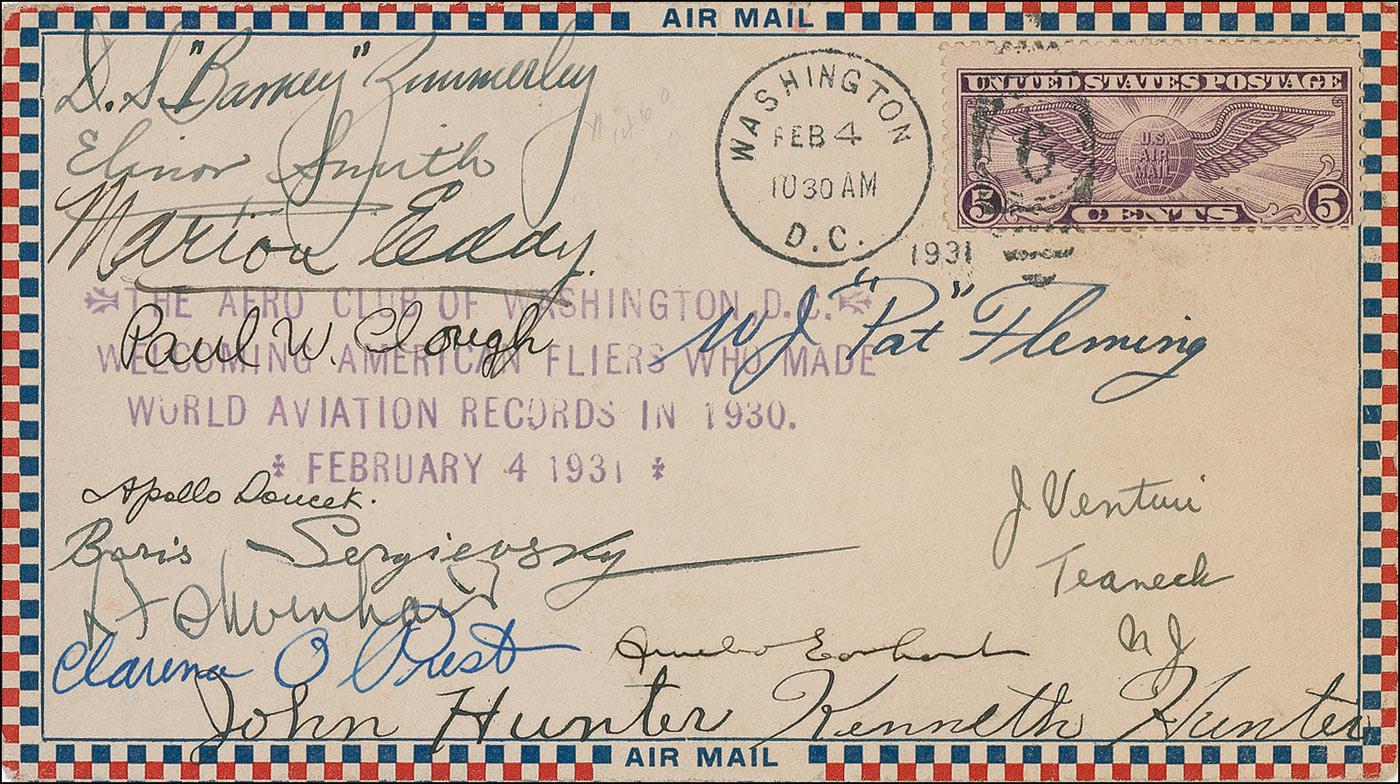 AIR MAIL
D. S. "Barney" Zimmerley
Elinor Smith
Marion Eddy
WASHINGTON
FEB 4
10 30 AM
D.C.
1931
UNITED STATES POSTAGE
U.S.
AIR
MAIL
6
5 CENTS 5
THE AERO CLUB OF WASHINGTON, D.C.
Paul W. Clough
W J "Pat" Fleming
WELCOMING AMERICAN FLIERS WHO MADE
WORLD AVIATION RECORDS IN 1930.
FEBRUARY 4 1931
Apollo Soucek.
Boris Sergievsky
J Venturi
Teaneck
N J
Clarence O Prest
Amelia Earhart
John Hunter Kenneth Hunter
AIR MAIL